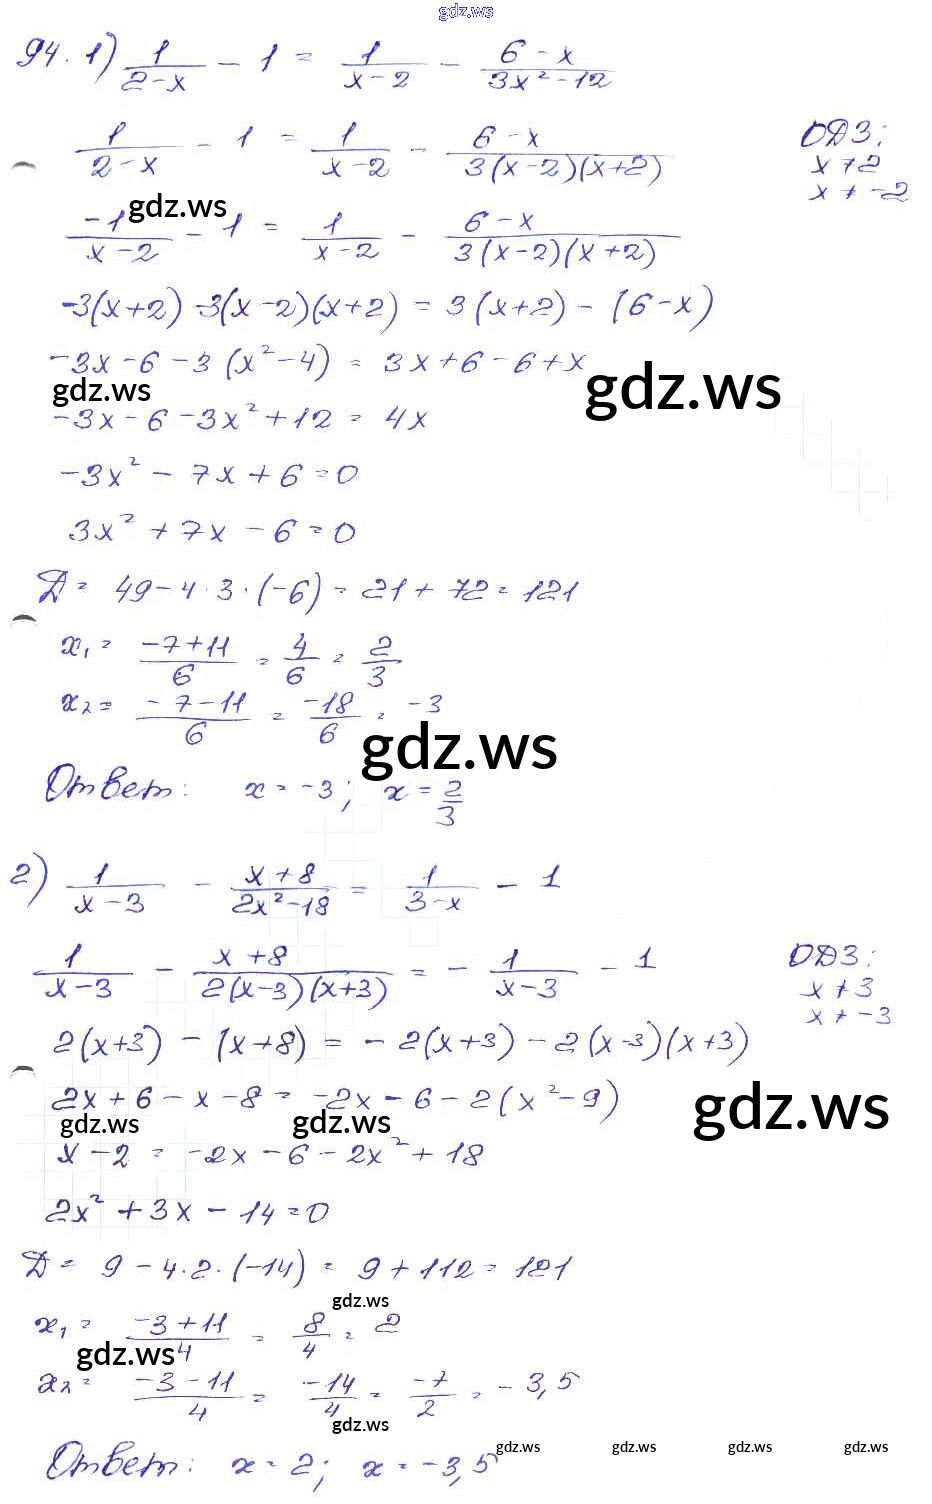 gdz.ws
94. 1) 1/(2-x) - 1 = 1/(x-2) - (6-x)/(3x²-12)
1/(2-x) - 1 = 1/(x-2) - (6-x)/(3(x-2)(x+2)) ОДЗ:
x ≠ 2
x ≠ -2
gdz.ws
-1/(x-2) - 1 = 1/(x-2) - (6-x)/(3(x-2)(x+2))
-3(x+2) -3(x-2)(x+2) = 3(x+2) - (6-x)
-3x-6-3(x²-4) = 3x+6-6+x
gdz.ws gdz.ws
-3x-6-3x²+12 = 4x
-3x²-7x+6=0
3x²+7x-6=0
Д = 49-4·3·(-6) = 21+72 = 121
x₁ = (-7+11)/6 = 4/6 = 2/3
x₂ = (-7-11)/6 = -18/6 = -3
gdz.ws
Ответ: x = -3; x = 2/3
2) 1/(x-3) - (x+8)/(2x²-18) = 1/(3-x) - 1
1/(x-3) - (x+8)/(2(x-3)(x+3)) = - 1/(x-3) - 1 ОДЗ:
x ≠ 3
x ≠ -3
2(x+3) - (x+8) = -2(x+3) - 2(x-3)(x+3)
2x+6-x-8 = -2x-6-2(x²-9)
gdz.ws gdz.ws gdz.ws
x-2 = -2x-6-2x²+18
2x²+3x-14=0
Д = 9-4·2·(-14) = 9+112 = 121
gdz.ws
x₁ = (-3+11)/4 = 8/4 = 2
gdz.ws
x₂ = (-3-11)/4 = -14/4 = -7/2 = -3,5
gdz.ws
Ответ: x = 2; x = -3,5
gdz.ws gdz.ws gdz.ws gdz.ws